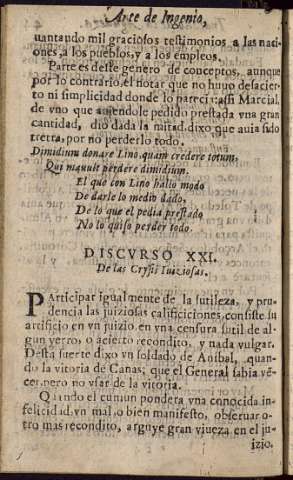 Arte de Ingenio,
uantando mil graciosos testimonios a las naci-
ones a los pueblos, y a los empleos.
Parte es deste genero de conceptos, aunque
por lo contrario, el notar que no huyo desacier-
to ni simplicidad donde lo pareci: assi Marcial,
de vno que auiendole pedido prestada vna gran
cantidad, dio dada la mitad, dixo que auia sido
treta, por no perderlo todo.
Dimidium donare Lino, quam credere totum,
Qui mauult perdere dimidium.
El que con Lino hallo modo
De darle lo medio dado,
De lo que el pedia prestado
No lo quiso perder todo.
DISCVRSO XXI.
De las Crysis Iuiziosas.
PArticipar igualmente de la sutileza, y pru-
dencia las juiziosas calificiciones, consiste su
artificio en vn juizio, en vna censura sutil de al-
gun yerro, o acierto recondito, y nada vulgar.
Desta suerte dixo vn soldado de Anibal, quan-
do la vitoria de Canas; que el General sabia vé-
cer, pero no vsar de la vitoria.
Quando el comun pondera vna conocida in-
felicidad, vn mal, o bien manifesto, obseruar o-
tro mas recondito, arguye gran viueza en el ju-
izio.